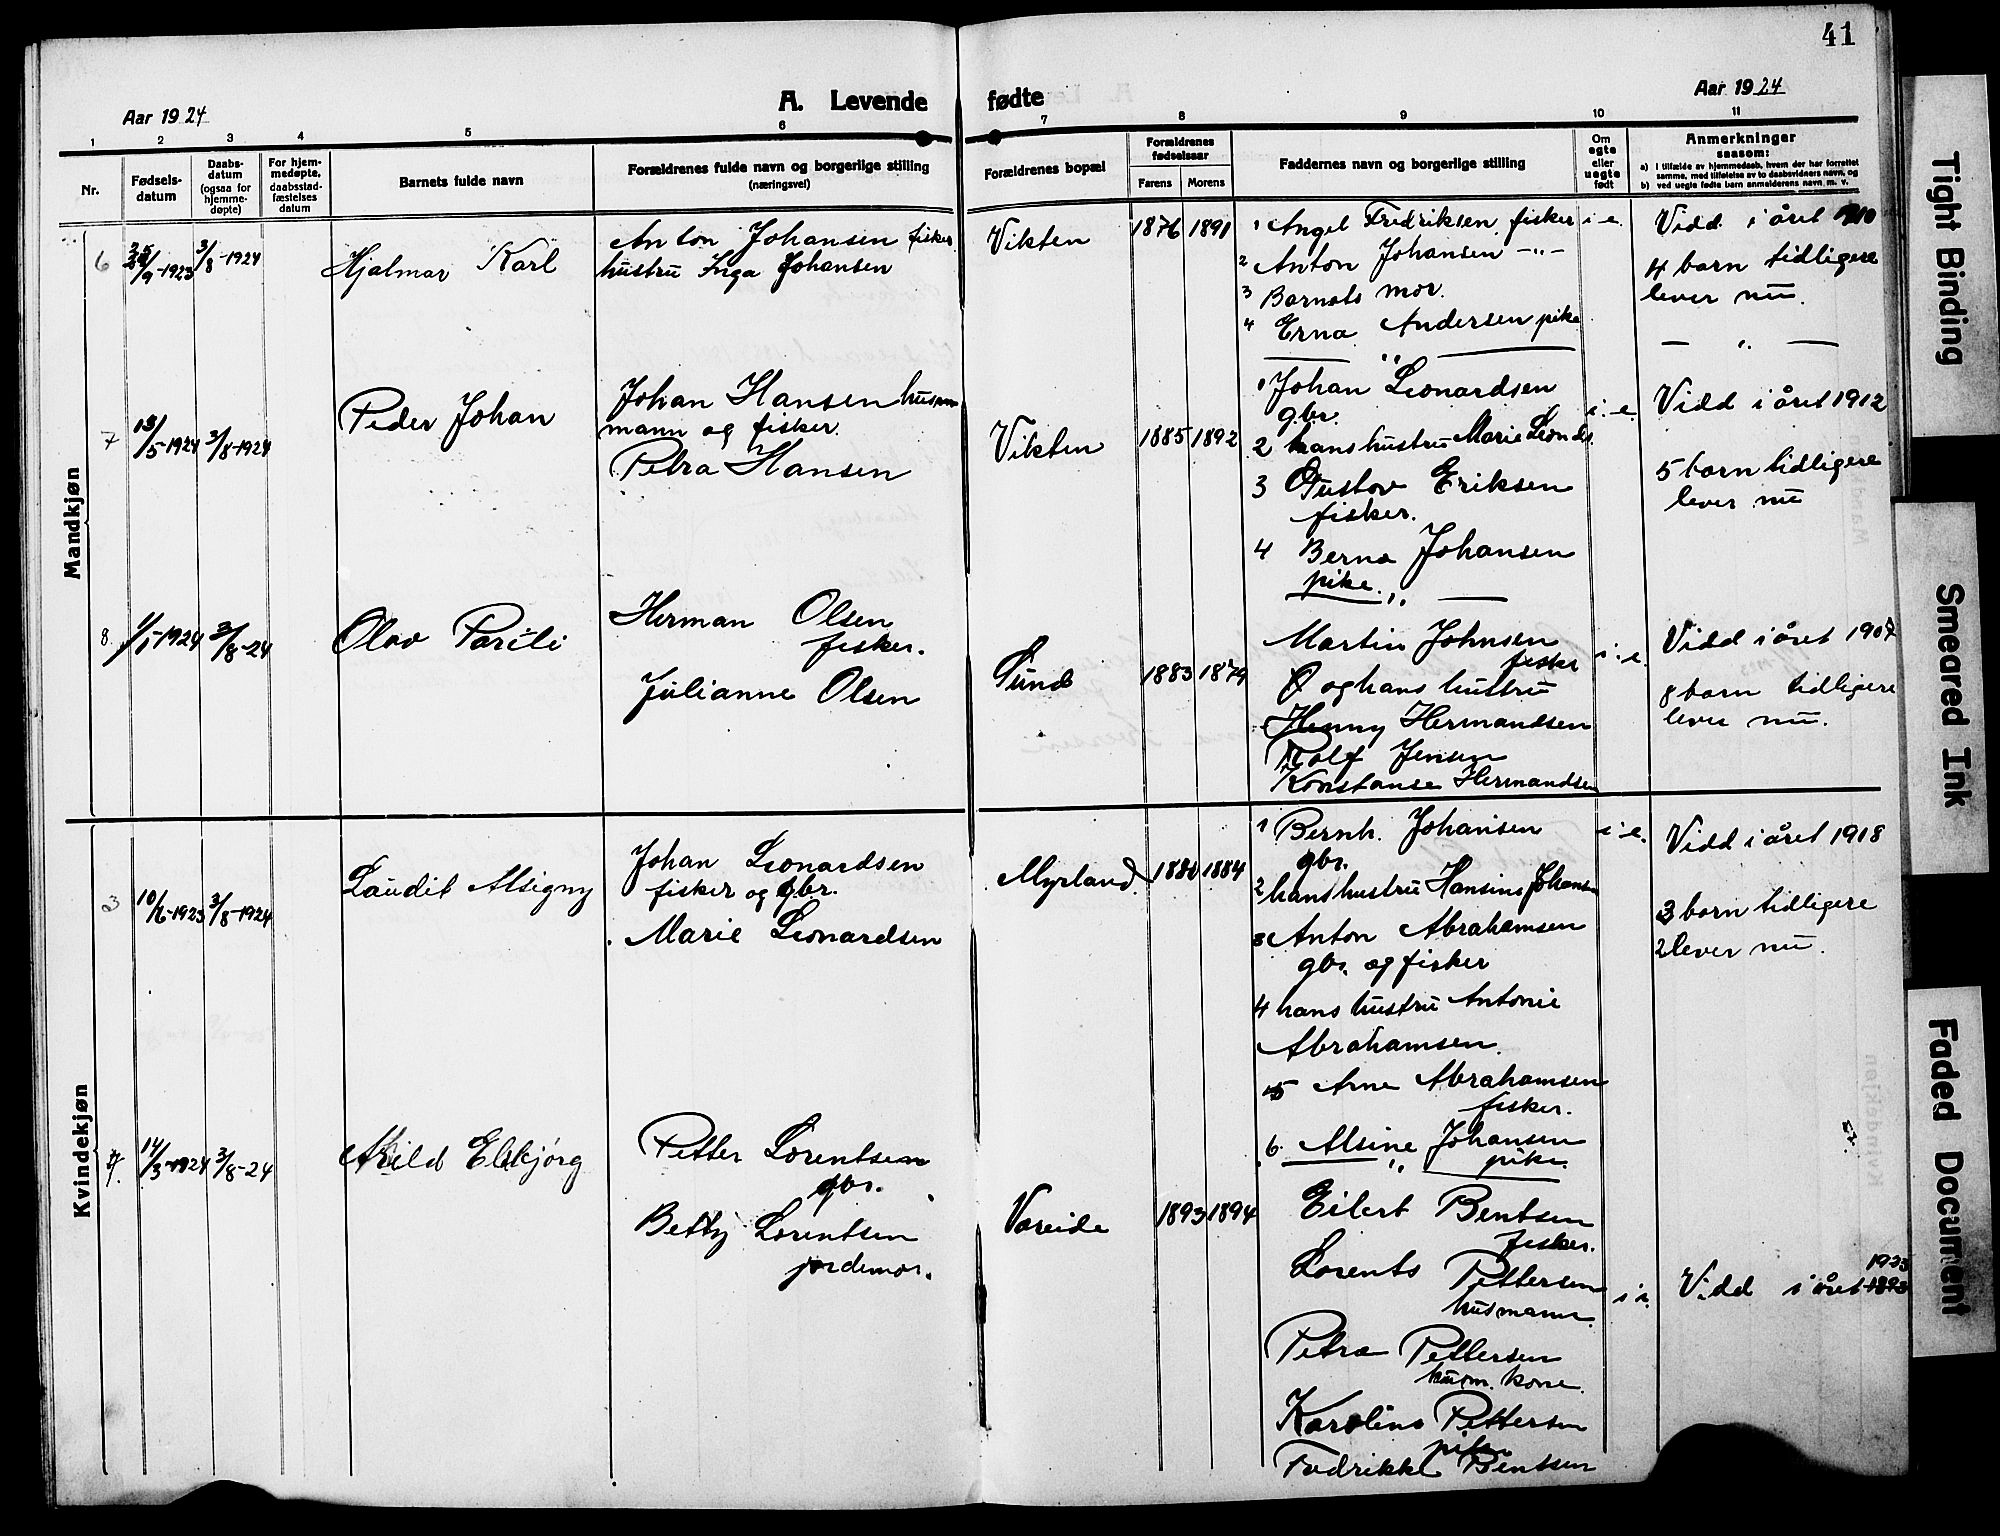 41
Aar 1924
A. Levende fødte
Aar 1924
1 2 3 4 5 6 7 8 9 10 11
Nr.
Fødsels-
datum
Daabs-
datum
(ogsaa for
hjemme-
døpte)
For hjem-
medøpte,
daabsstad-
fæstelses
datum
Barnets fulde navn
Forældrenes fulde navn og borgerlige stilling
(næringsvei)
Forældrenes bopæl
Forældrenes
fødselsaar
Farens
Morens
Faddernes navn og borgerlige stilling
Om
egte
eller
uegte
født
Anmerkninger
saasom:
a) i tilfælde av hjemmedaab, hvem der har forrettet
samme, med tilføielse av to daabsvidners navn, og
b) ved uegte fødte barn anmelderens navn m. v.
Mandkjøn
6
25/9-1923
3/8-1924
Hjalmar Karl
Anton Johansen fisker
hustru Inga Johansen
Vikten
1876
1891
1 Angel Fredriksen fisker
2 Anton Johansen —"—
3 Barnets mor.
4 Erna Andersen pike
— " —
i e.
Vidd i året 1910
4 barn tidligere
lever nu.
— " —
7
13/5-1924
3/8-1924
Peder Johan
Johan Hansen hus
mann og fisker.
Petra Hansen
Vikten
1885
1892
1 Johan Leonardsen
gbr.
2 hans hustru Marie Leonds.
3 Gustav Eriksen
fisker.
4 Berna Johansen
pike. " —
i. e.
Vidd i året 1912
5 barn tidligere
lever nu
8
1/1-1924
3/8-24
Olav Parili
Herman Olsen
fisker.
Julianne Olsen
Sund
1883
1879
Martin Johnsen
fisker
og hans hustru
Henny Hermandsen
Rolf Jensen
Konstanse Hermandsen
i. e.
Vidd i året 1907
8 barn tidligere
lever nu.
Kvindekjøn
3
10/6-1923
3/8-1924
Laudit Alsigny
Johan Leonardsen
fisker og gbr.
Marie Leonardsen
Myrland
1880
1884
1 Bernh. Johansen
gbr.
2 hans hustru Hansine Johansen
3 Anton Abrahamsen
gbr. og fisker
4 hans hustru Antonie
Abrahamsen.
5 Arne Abrahamsen
fisker.
6. Alsine Johansen
pike.
— " —
i. e.
Vidd i året 1918
3 barn tidligere
2 lever nu.
4.
14/3-1924
3/8-24
Akild Elbjørg
Petter Lorentsen
gbr.
Betty Lorentsen
jordemor.
Vareide
1893
1894
Eilert Bentsen
fisker.
Lorents Pettersen
husmann.
Petra Pettersen
husm. kone.
Karoline Pettersen
pike
Fredrikke Bentsen
i. e.
Vidd i året 1893
1923
Tight Binding
Smeared Ink
Faded Document